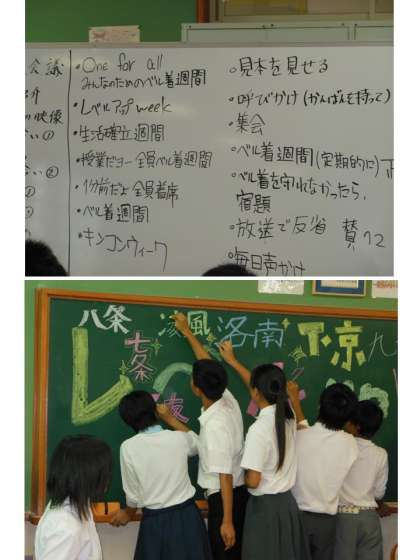 会議
・One for all
みんなのためのベル着週間
・レベルアップweek
・生活確立週間
・授業だヨー全員ベル着週間
・1分前だよ全員着席
・ベル着週間
・キンコンウィーク
映像
・見本を見せる
・呼びかけ(かんばんを持って)
・集会
・ベル着週間(定期的に)
・ベル着を守れなかったら、
宿題
・放送で反省 賛
・毎日声かけ
八条
凌風
洛南
下京
九
七条